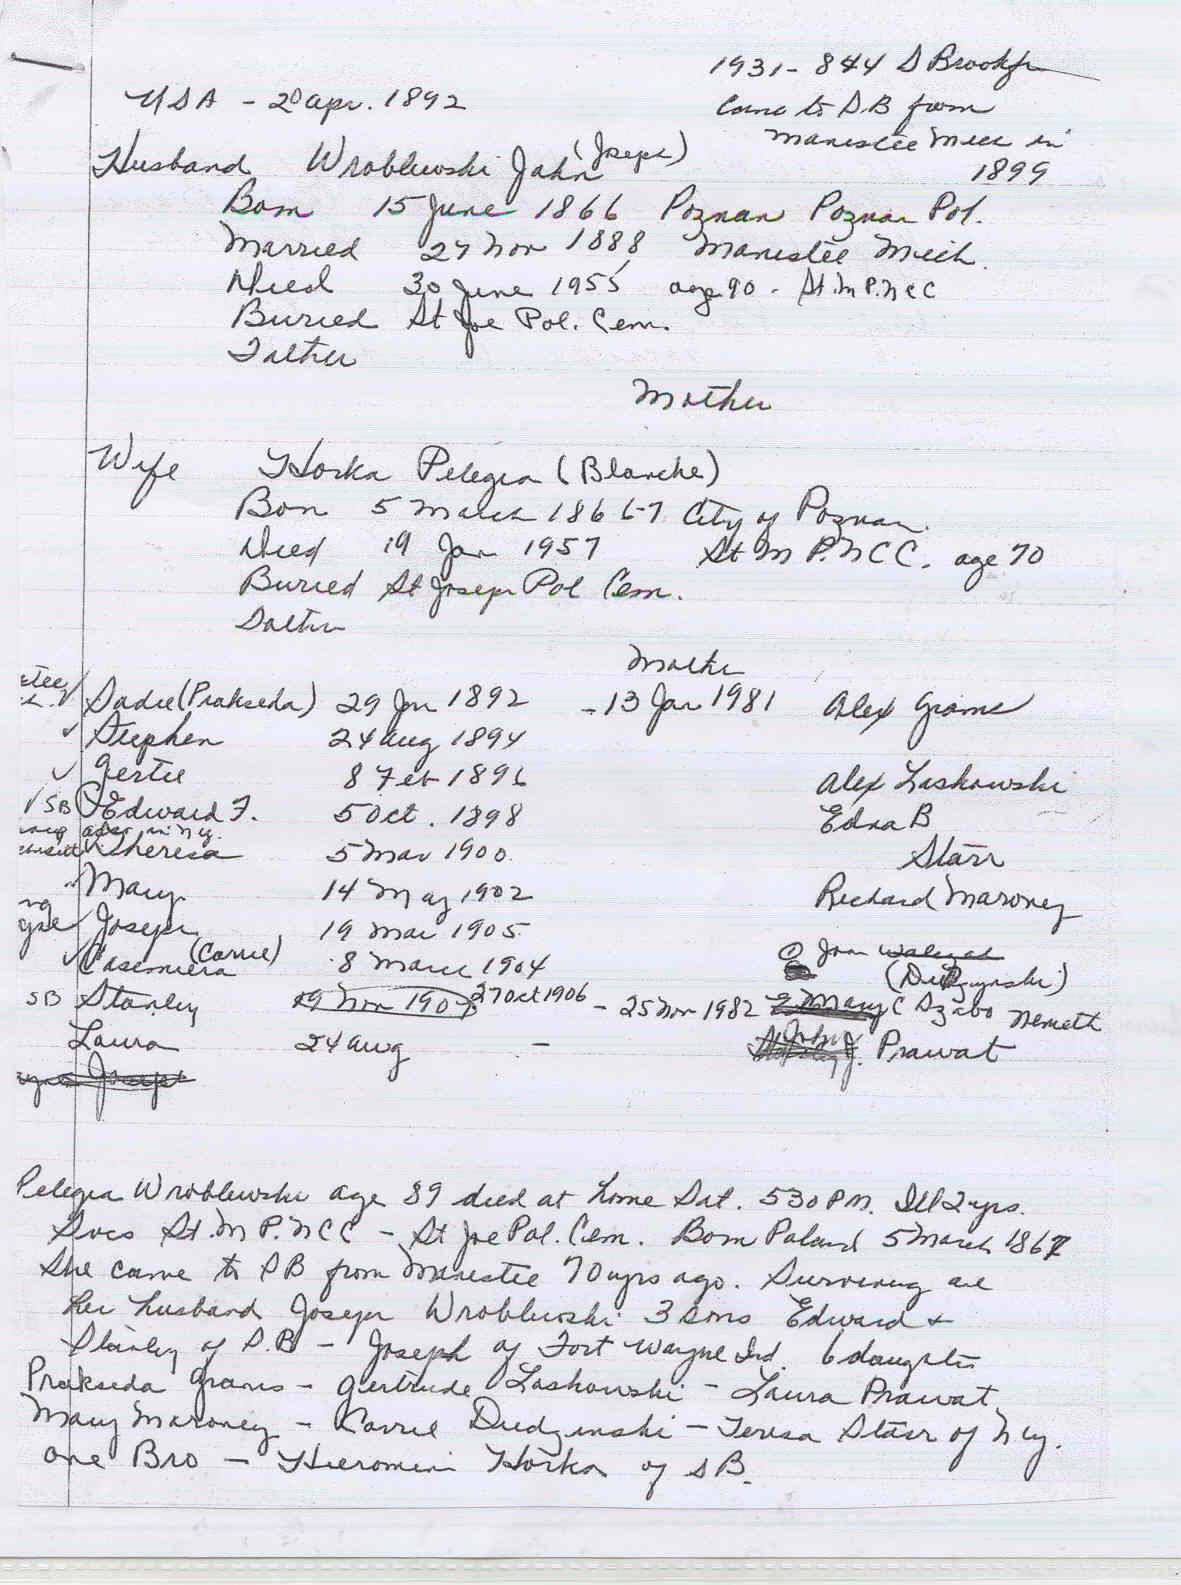 1931- 844 S Brookf
USA - 20 apr. 1892
Came to S.B from
Manistee Mich in
1899
Husband Wroblewski John (Joseph)
Born 15 June 1866 Poznan Poznan Pol.
Married 27 Nov 1888 Manistee Mich.
Died 30 June 1955 age 90 - St. M P.N C C
Buried St Joe Pol. Cem.
Father
Mother
Wife Horka Pelegia (Blanche)
Born 5 March 1866-7 City of Poznan.
Died 19 Jan 1957 St M P.N C C. age 90
Buried St Joseph Pol Cem.
Father
Mother
Sadie (Prakseda) 29 Jan 1892 - 13 Jan 1981 Alex Grams
Stephen 24 Aug 1894
Gertie 8 Feb 1896 Alex Laskowski
SB Edward F. 5 Oct. 1898 Edna B
in N.Y.
Theresa 5 Mar 1900 Starr
Mary 14 May 1902 Richard Maroney
Joseph 19 Mar 1905
Casemiera (Carrie) 8 March 1904 Jan (Dudzynski)
SB Stanley 19 Nov 1907 27 Oct 1906 - 25 Nov 1982 Mary C Szabo Nemeth
Laura 24 Aug - John J. Prawat
Joseph
Pelegia Wroblewski age 89 died at home Sat. 530 PM. Ill 2 yrs.
Svcs St. M P.N C C - St Joe Pol. Cem. Born Poland 5 March 1867
She came to SB from Manistee 70 yrs ago. Surviving are
her husband Joseph Wroblewski 3 sons Edward +
Stanley of S.B - Joseph of Fort Wayne Ind. 6 daughters
Prakseda Grams - Gertrude Laskowski - Laura Prawat,
Mary Maroney - Carrie Dudzinski - Teresa Starr of N.Y.
One Bro - Hieromin Horka of SB.